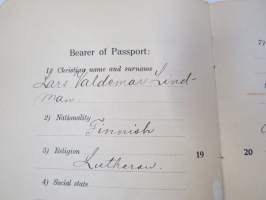 Bearer of Passport:
1) Christian name and surname
Lars Valdemar Lind-
man.
2) Nationality
Finnish
3) Religion
Lutheran.
4) Social state
19
20
7)